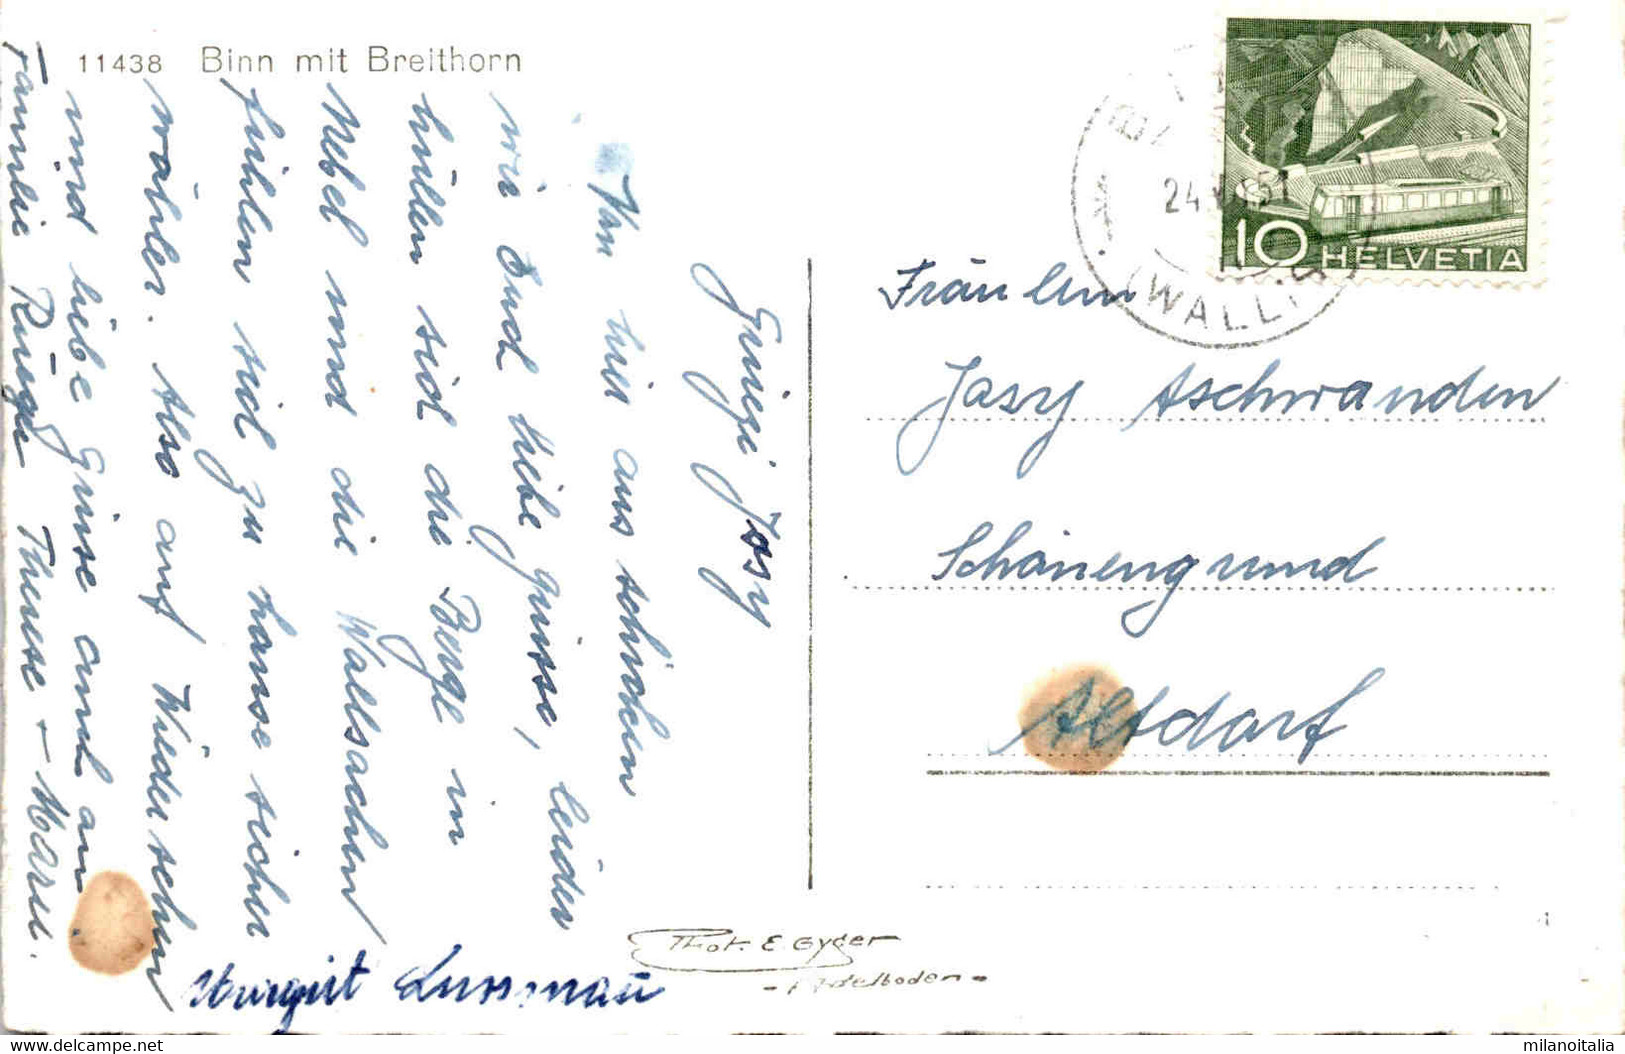 11438 Binn mit Breithorn
Grüezi Josy
Von hier aus schicken
wir Eud liebe grüsse, leider
hüllen sid die Berge in
Nebel und die Wallsachen
fühlen sid zu hause sicher
wähler. Also auf Wiedersehn
und liebe Grüsse auch an
Familie Rüegge Therese + Marie.
Margrit
Phot. E. Gyger
- Adelboden -
24.V 51
(WALLIS)
10 HELVETIA
Fräulein
Josy Aschwanden
Schönengrund
Altdorf
www.delcampe.net
milanoitalia